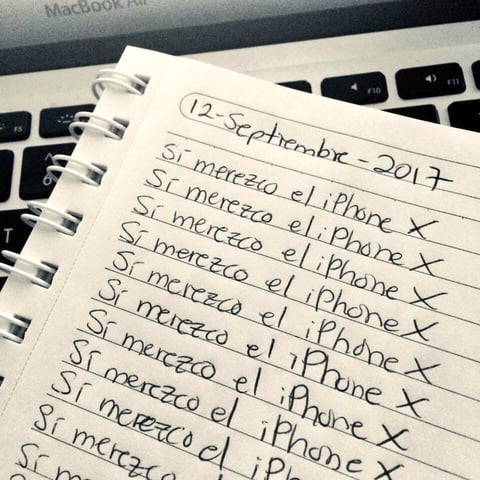 MacBook Air
F5
F10
F11
T
12-Septiembre-2017
Sí merezco el iPhone X
Sí merezco el iPhone X
Sí merezco el iPhone X
Sí merezco el iPhone X
Sí merezco el iPhone X
Sí merezco el iPhone X
Sí merezco el iPhone X
Sí merezco el iPhone X
Sí merezco el iPh
Sí merezco
Sí m